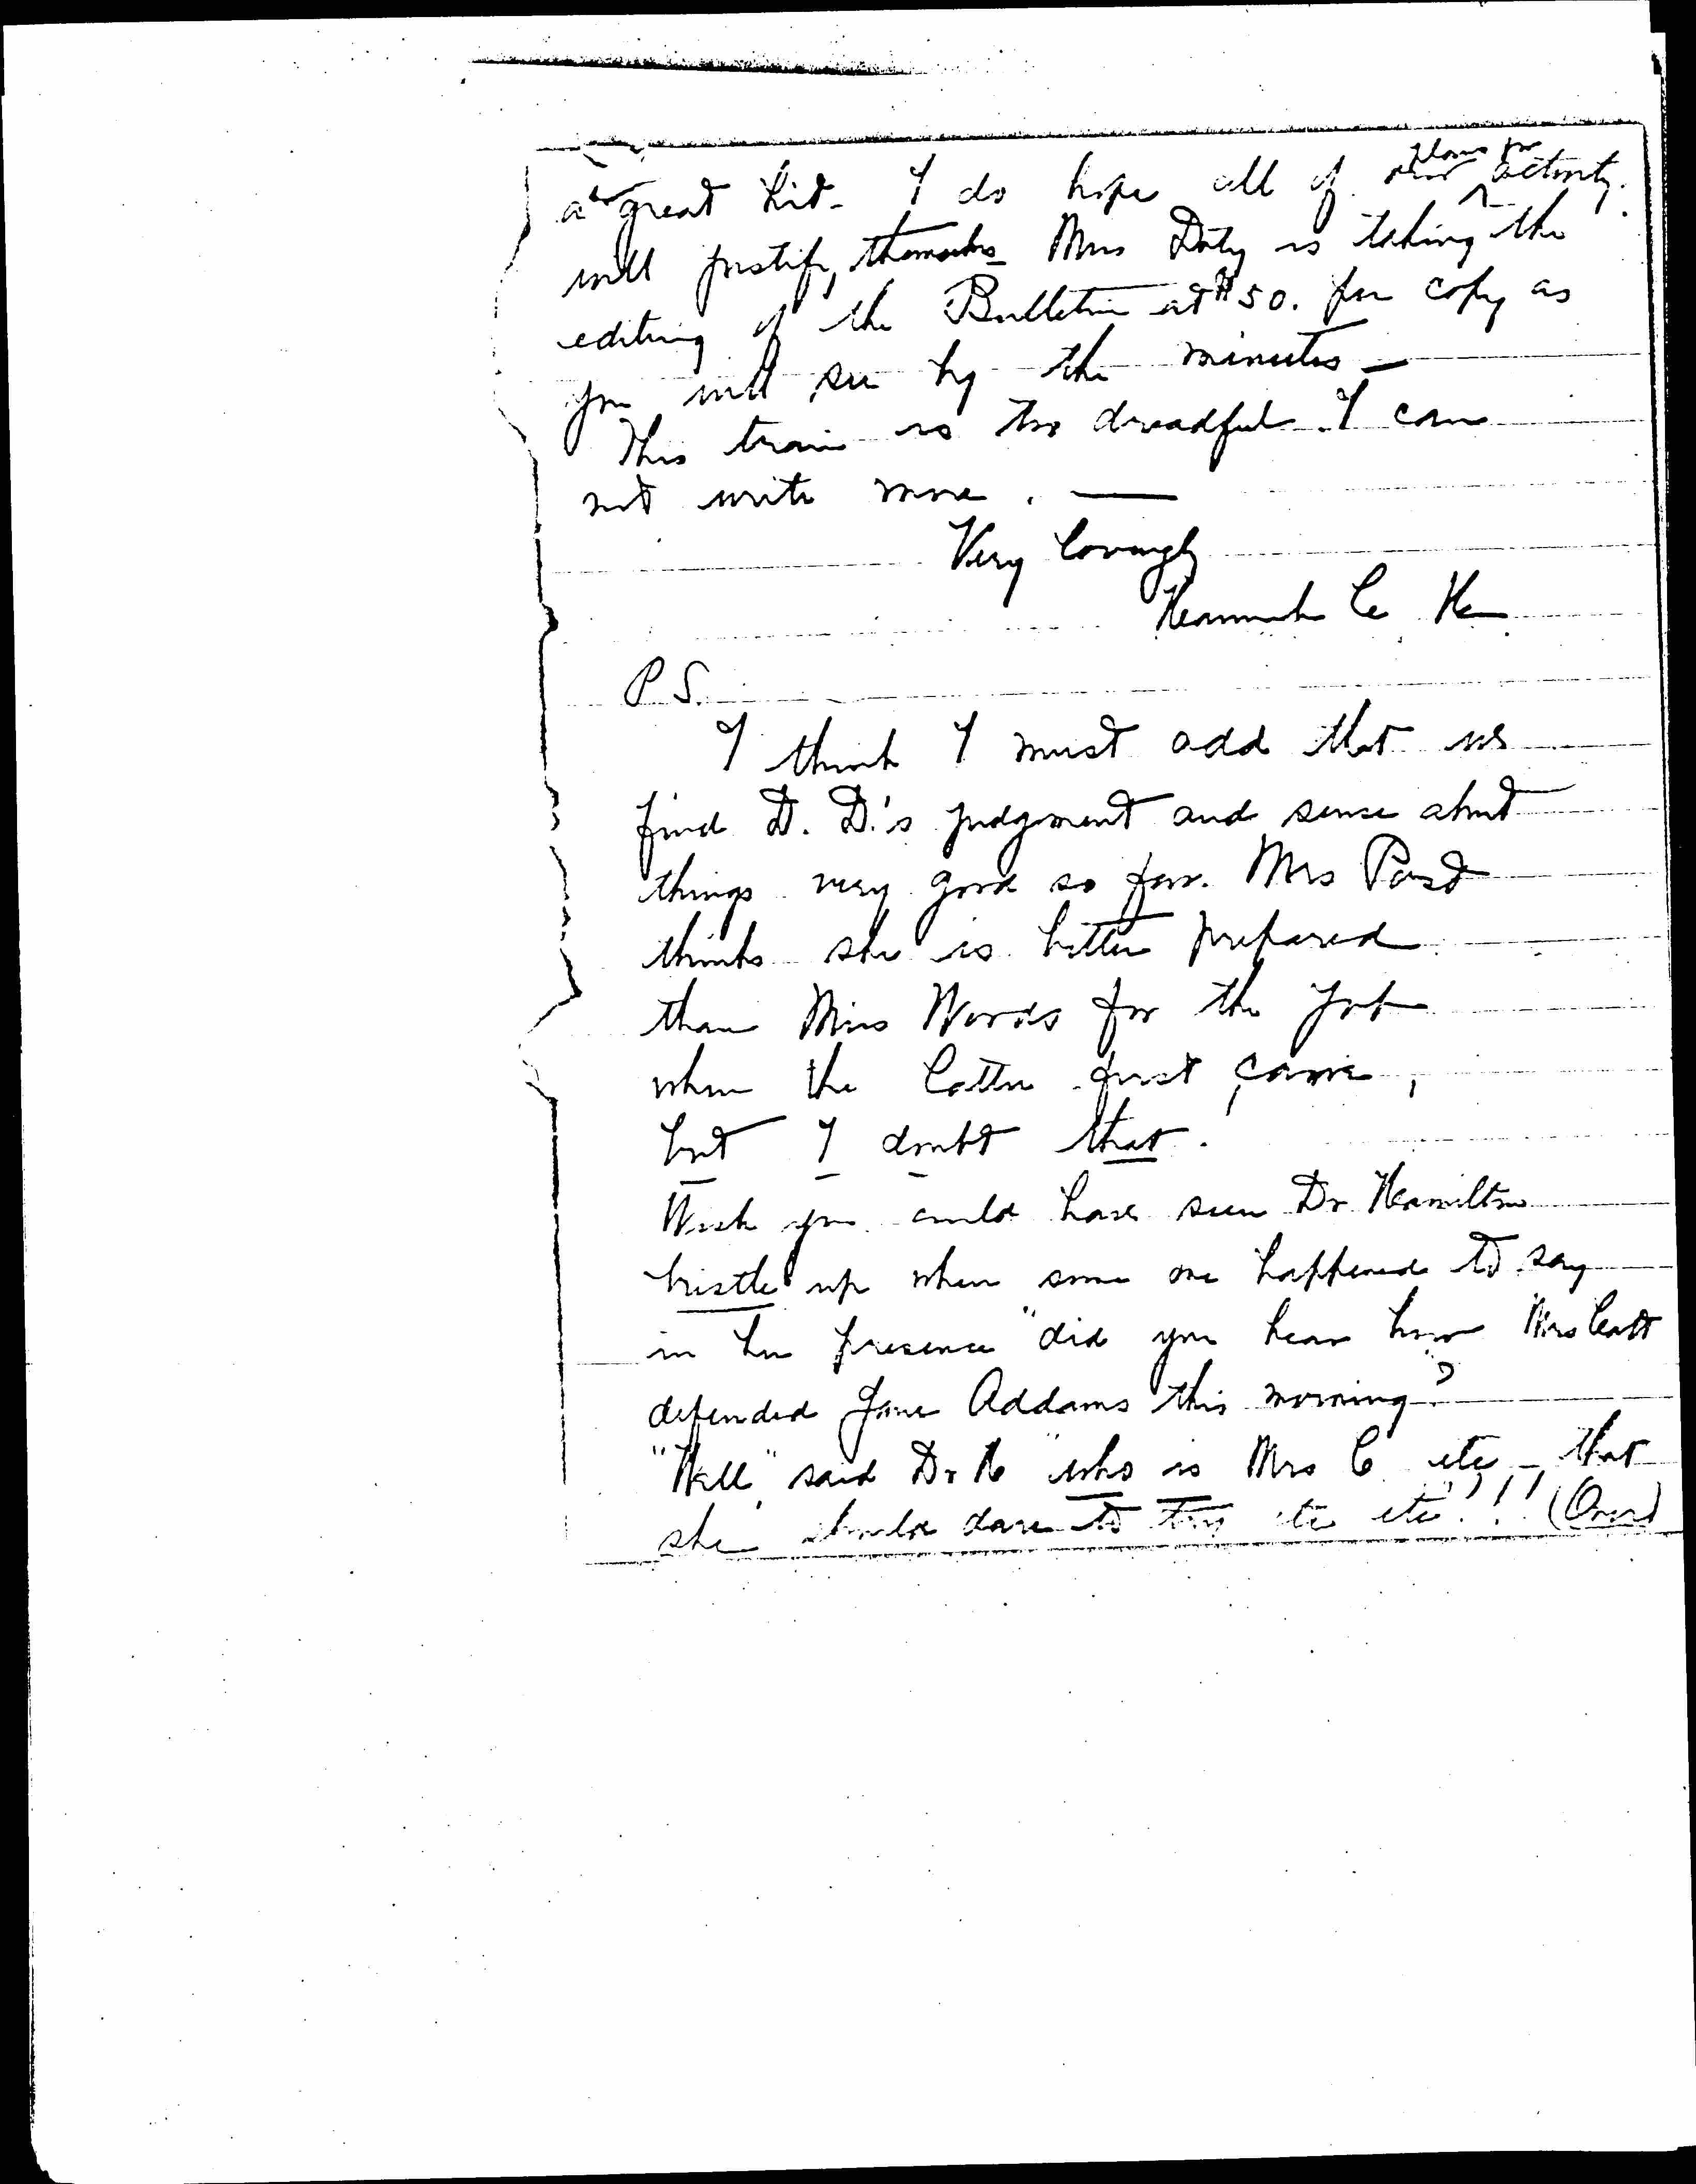 a great hit - I do hope all of our plans for activity.
will justify themselves - Miss Doty is taking the
editing of the Bulletin at $50. per copy as
you will see by the minutes -
This train is too dreadful. I can
not write more. —
Very lovingly
Hannah C H
P.S.
I think I must add that we
find D. D.'s judgment and sense about
things very good so far. Mrs Post
thinks she is better prepared
than Miss Woods for the job
when the latter first came,
but I doubt that.
Wish you could have seen Dr Hamilton
bristle up when some one happened to say
in her presence "did you hear how Mrs Catt
defended Jane Addams this morning?
"Well" said Dr H "who is Mrs C etc - that
she should dare to try etc etc"!!! (Over)